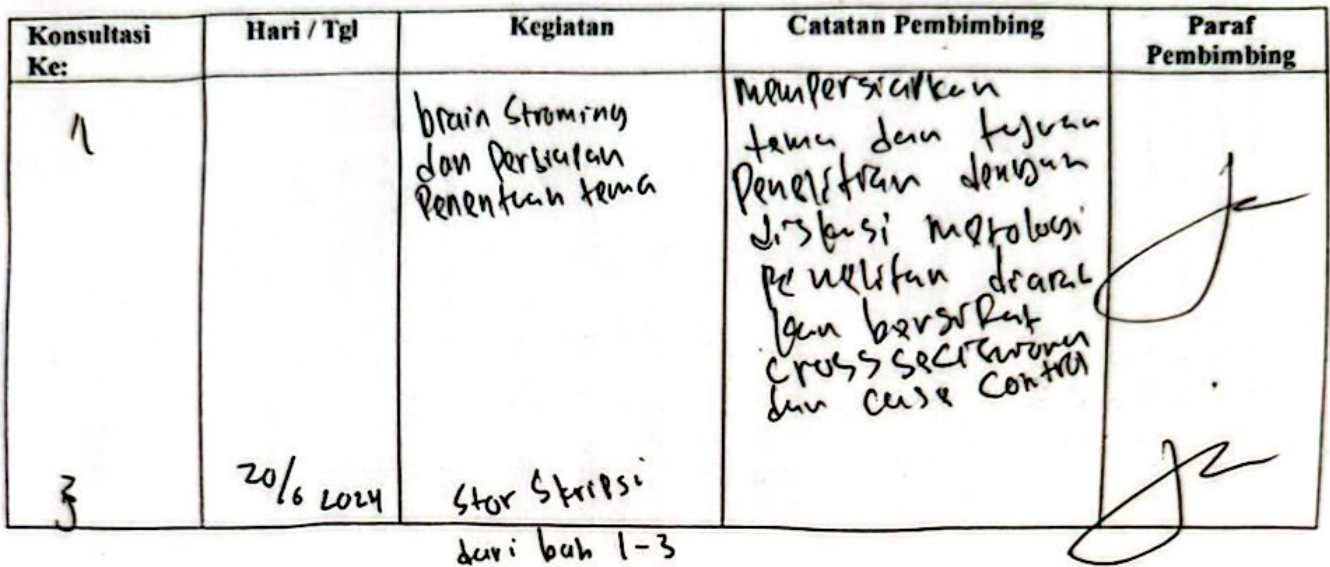 Konsultasi Ke:
Hari / Tgl
Kegiatan
Catatan Pembimbing
Paraf Pembimbing
1
brain Stroming
dan Persiapan
Penentuan tema
mempersiapkan
tema dan tujuan
Penelitian dengan
diskusi metologi
penelitan diarah
kan bersifat
cross sectional
dan case control
3
20/6 2024
Stor Skripsi
dari bab 1-3